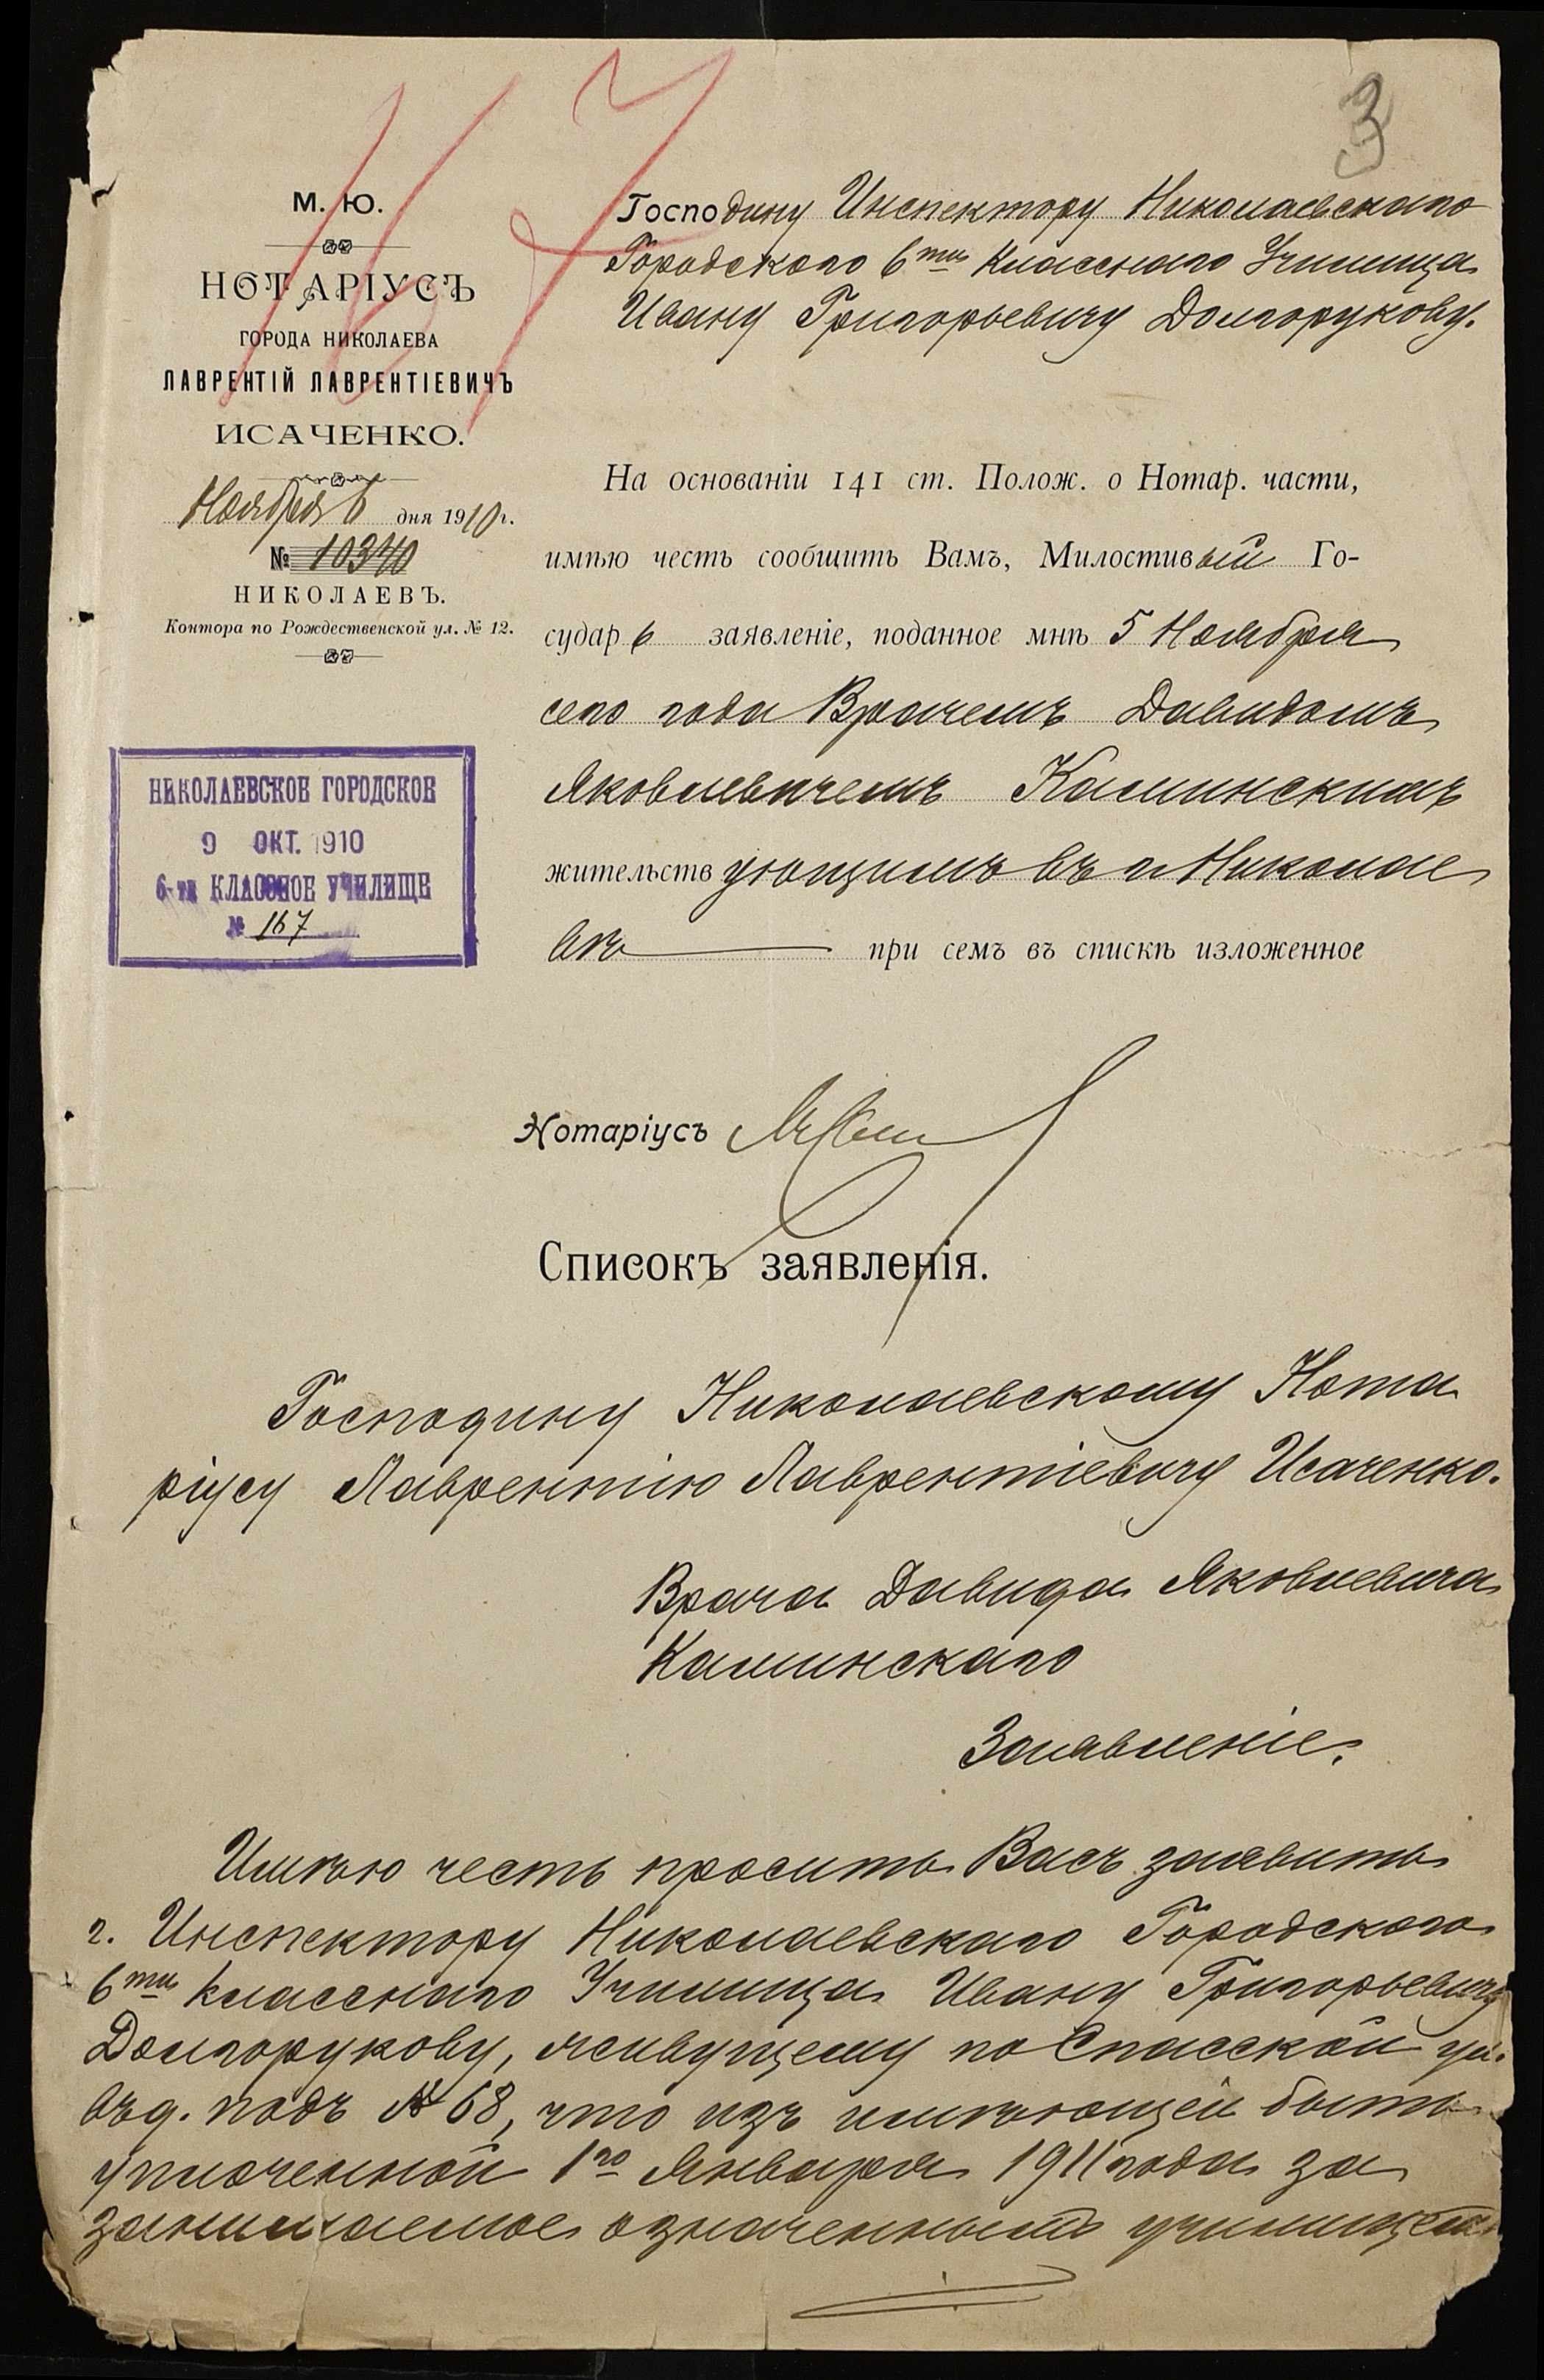 3
М. Ю.
НОТАРІУСЪ
ГОРОДА НИКОЛАЕВА
ЛАВРЕНТІЙ ЛАВРЕНТІЕВИЧЪ
ИСАЧЕНКО.
Ноября 6 дня 1910 г.
№ 10340
НИКОЛАЕВЪ.
Контора по Рождественской ул. № 12.
НИКОЛАЕВСКОЕ ГОРОДСКОЕ
9 ОКТ. 1910
6-ти КЛАССНОЕ УЧИЛИЩЕ
№ 167
Господину Инспектору Николаевскаго
Городского 6ти Класснаго Училища
Ивану Григорьевичу Долгорукову.
На основаніи 141 ст. Полож. о Нотар. части,
имѣю честь сообщить Вамъ, Милостивый Го-
сударь заявленіе, поданное мнѣ 5 Ноября
сего года Врачемъ Давидомъ
Яковлевичемъ Каминскимъ
жительствующимъ въ г. Николае
вѣ при семъ въ спискѣ изложенное
Нотаріусъ
Списокъ заявленія.
Господину Николаевскому Нота
ріусу Лаврентію Лаврентіевичу Исаченко.
Врача Давида Яковлевича
Каминскаго
Заявленіе.
Имѣю честь просить Васъ заявить
г. Инспектору Николаевскаго Городского
6ти класснаго Училища Ивану Григорьевичу
Долгорукову, живущему по Спасской ул.
въ д. подъ № 68, что изъ имѣющей быть
уплоченной 1го Января 1911 года за
занимаемое означеннымъ училищемъ